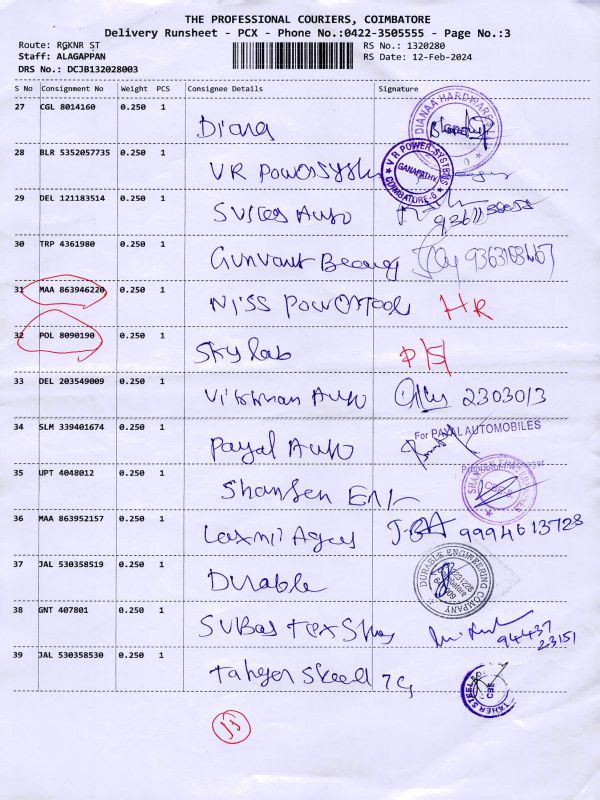 THE PROFESSIONAL COURIERS, COIMBATORE
Delivery Runsheet - PCX - Phone No.:0422-3505555 - Page No.:3
Route: RGKNR ST
RS No.: 1320280
Staff: ALAGAPPAN
RS Date: 12-Feb-2024
DRS No.: DCJB132028003
S No Consignment No Weight PCS Consignee Details Signature
27 CGL 8014160 0.250 1 Diana
DIANAA HARDWARE
28 BLR 5352057735 0.250 1 VR Power
VR POWER SYSTEMS GANAPATHY COIMBATORE-6
29 DEL 121183514 0.250 1 Auto
30 TRP 4361980 0.250 1 Gunvant
31 MAA 863946220 0.250 1 Niss Powertool HR
32 POL 8090190 0.250 1 Skylab P/S
33 DEL 203549009 0.250 1 Auto 2303013
34 SLM 339401674 0.250 1 Payal Auto
For PAYAL AUTOMOBILES
35 UPT 4048012 0.250 1 Shansen
36 MAA 863952157 0.250 1 Laxmi 9994613728
37 JAL 530358519 0.250 1 Durable
DURABLE ENGINEERING COMPANY
38 GNT 407801 0.250 1 Subas
94437
23151
39 JAL 530358530 0.250 1 Taher Steel
TAHER STEEL CBE